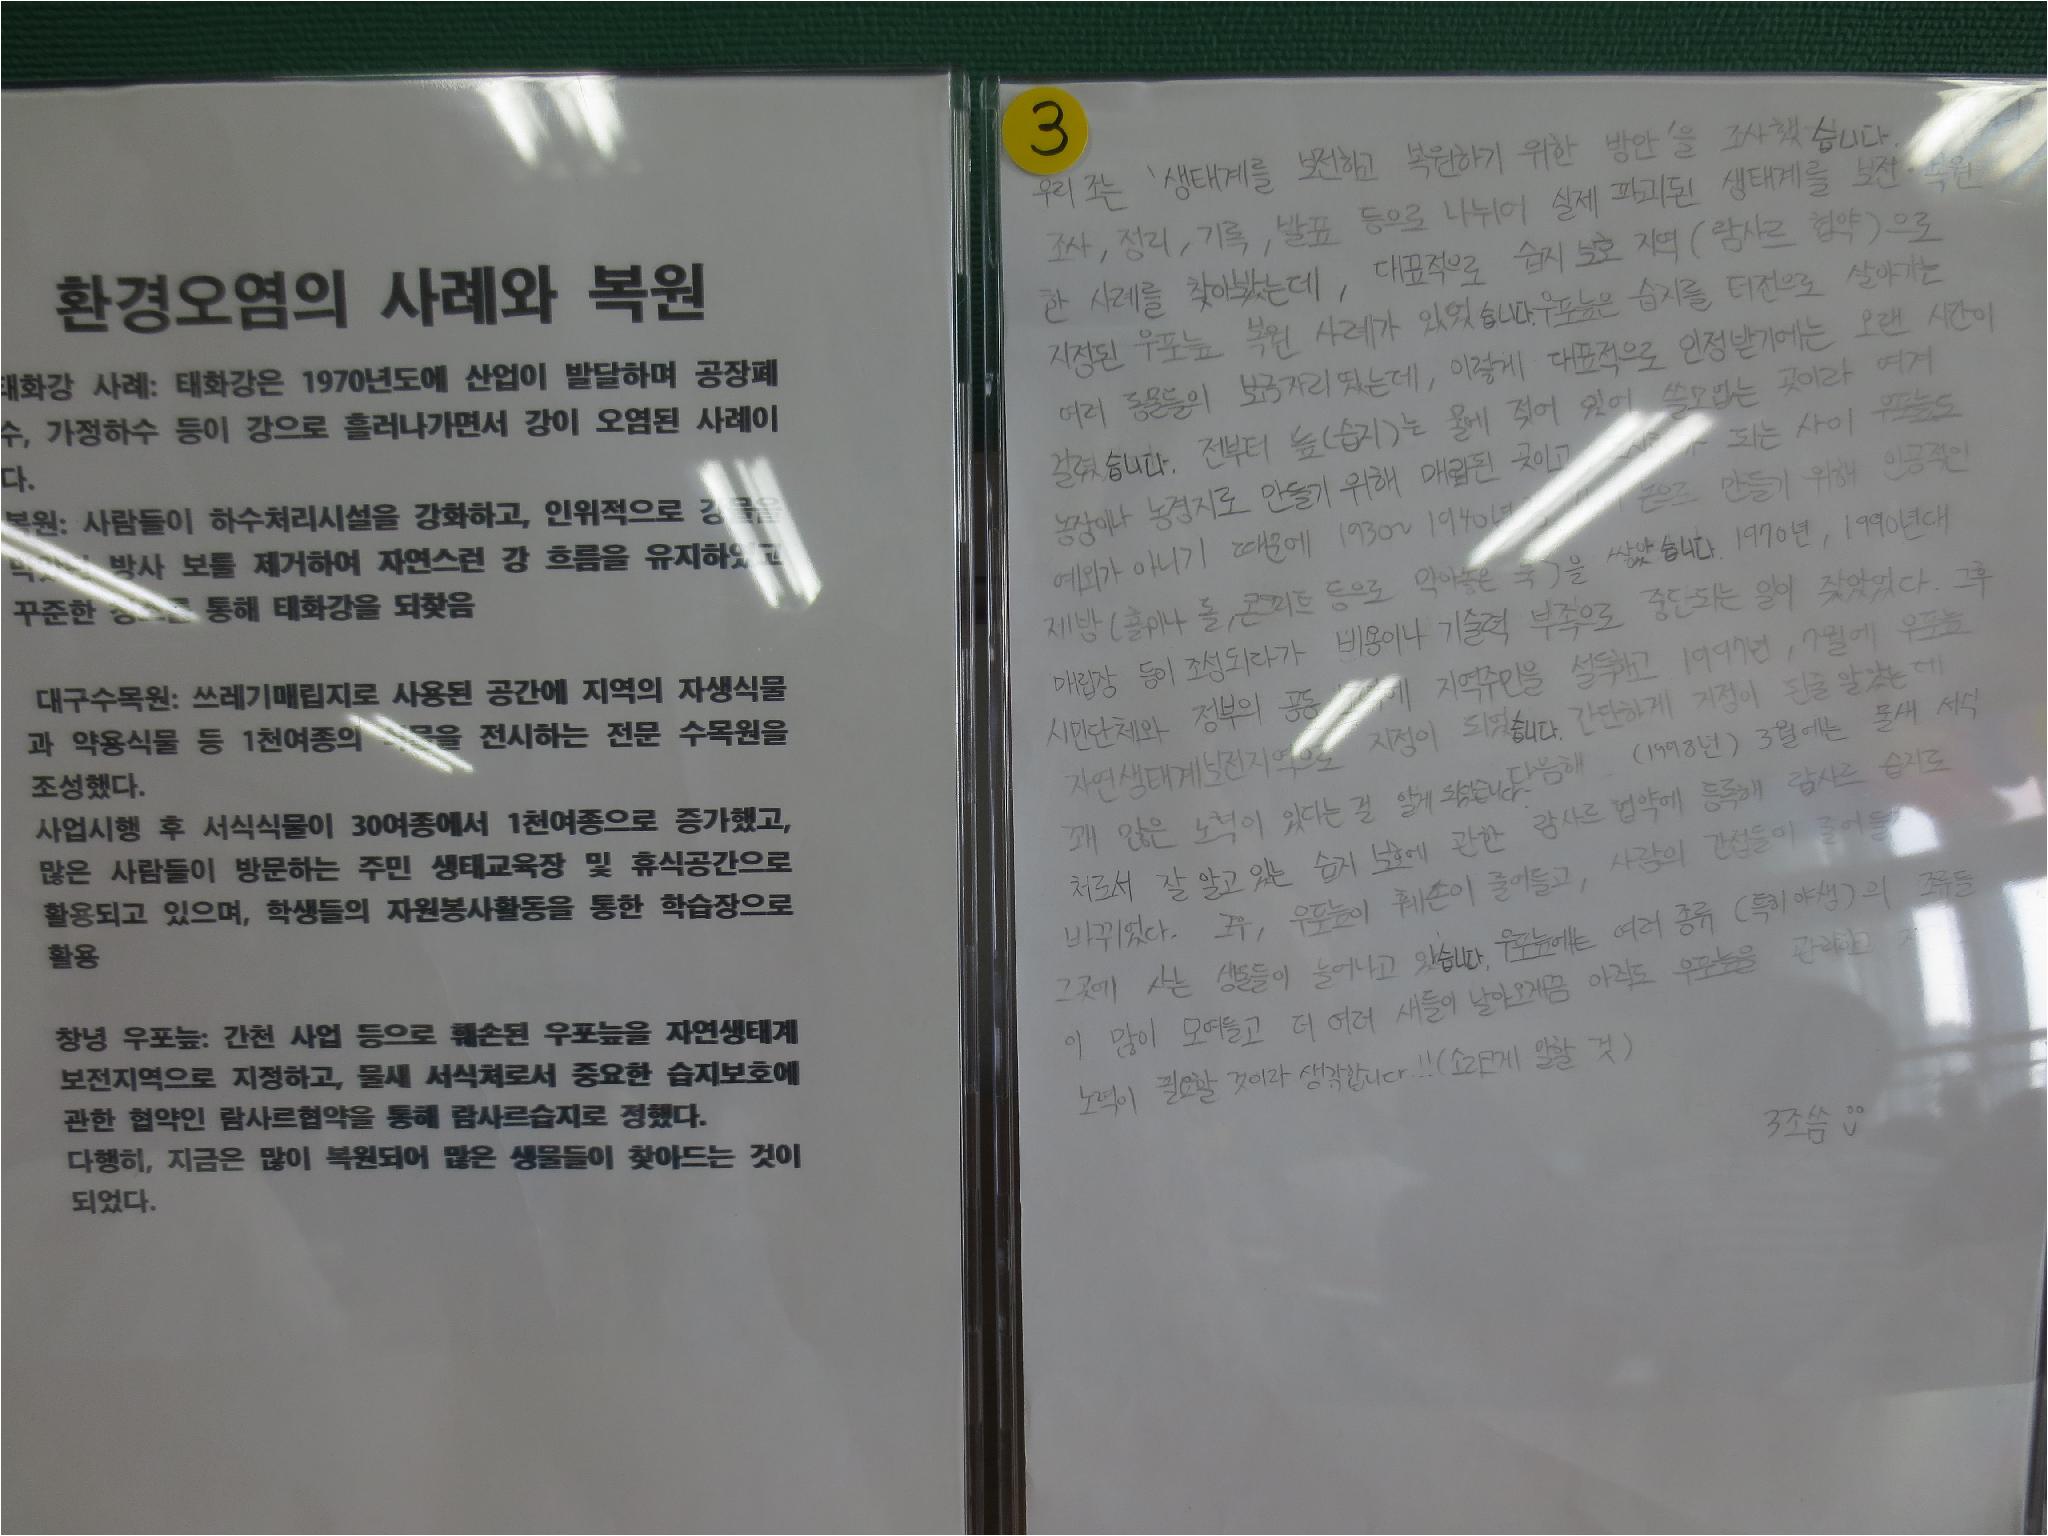 환경오염의 사례와 복원
태화강 사례: 태화강은 1970년도에 산업이 발달하며 공장폐
수, 가정하수 등이 강으로 흘러나가면서 강이 오염된 사례이
다.
복원: 사람들이 하수처리시설을 강화하고, 인위적으로
방사 보를 제거하여 자연스런 강 흐름을 유지하였고
꾸준한 통해 태화강을 되찾음
대구수목원: 쓰레기매립지로 사용된 공간에 지역의 자생식물
과 약용식물 등 1천여종의 전시하는 전문 수목원을
조성했다.
사업시행 후 서식식물이 30여종에서 1천여종으로 증가했고,
많은 사람들이 방문하는 주민 생태교육장 및 휴식공간으로
활용되고 있으며, 학생들의 자원봉사활동을 통한 학습장으로
활용
창녕 우포늪: 간천 사업 등으로 훼손된 우포늪을 자연생태계
보전지역으로 지정하고, 물새 서식처로서 중요한 습지보호에
관한 협약인 람사르협약을 통해 람사르습지로 정했다.
다행히, 지금은 많이 복원되어 많은 생물들이 찾아드는 것이
되었다.
3
우리 조는 '생태계를 보전하고 복원하기 위한 방안'을 조사했습니다.
조사, 정리, 기록, 발표 등으로 나뉘어 실제 파괴된 생태계를 보전·복원
한 사례를 찾아봤는데, 대표적으로 습지 보호 지역(람사르 협약)으로
지정된 우포늪 복원 사례가 있었습니다. 우포늪은 습지를 터전으로 살아가는
여러 동물들의 보금자리였는데, 이렇게 대표적으로 인정받기에는 오랜 시간이
걸렸습니다. 전부터 늪(습지)는 물에 젖어 있어 쓸모없는 곳이라 여겨
농장이나 농경지로 만들기 위해 매립된 곳이고 되는 사이 우포늪도
예외가 아니기 때문에 1930~1940년 만들기 위해 인공적인
제방(흙이나 돌, 콘크리트 등으로 막아놓은 둑)을 쌓았습니다. 1970년, 1990년대
매립장 등이 조성되다가 비용이나 기술력 부족으로 중단되는 일이 잦았었다. 그후
시민단체와 정부의 공동 지역주민을 설득하고 1997년, 7월에 우포늪
자연생태계보전지역으로 지정이 되었습니다. 간단하게 지정이 된줄 알았는데
꽤 많은 노력이 있다는 걸 알게 되었습니다. 다음해 (1998년) 3월에는 물새 서식
처로서 잘 알고 있는 습지 보호에 관한 람사르 협약에 등록해 람사르 습지로
바뀌었다. 그후, 우포늪이 훼손이 줄어들고, 사람의 간접들이 줄어들
그곳에 사는 생물들이 늘어나고 있습니다. 우포늪에는 여러 종류 (특히 야생)의 조류들
이 많이 모여들고 더 여러 새들이 날아오게끔 아직도 우포늪을 관리하고
노력이 필요할 것이라 생각합니다!! (소리크게 말할 것)
3조씀